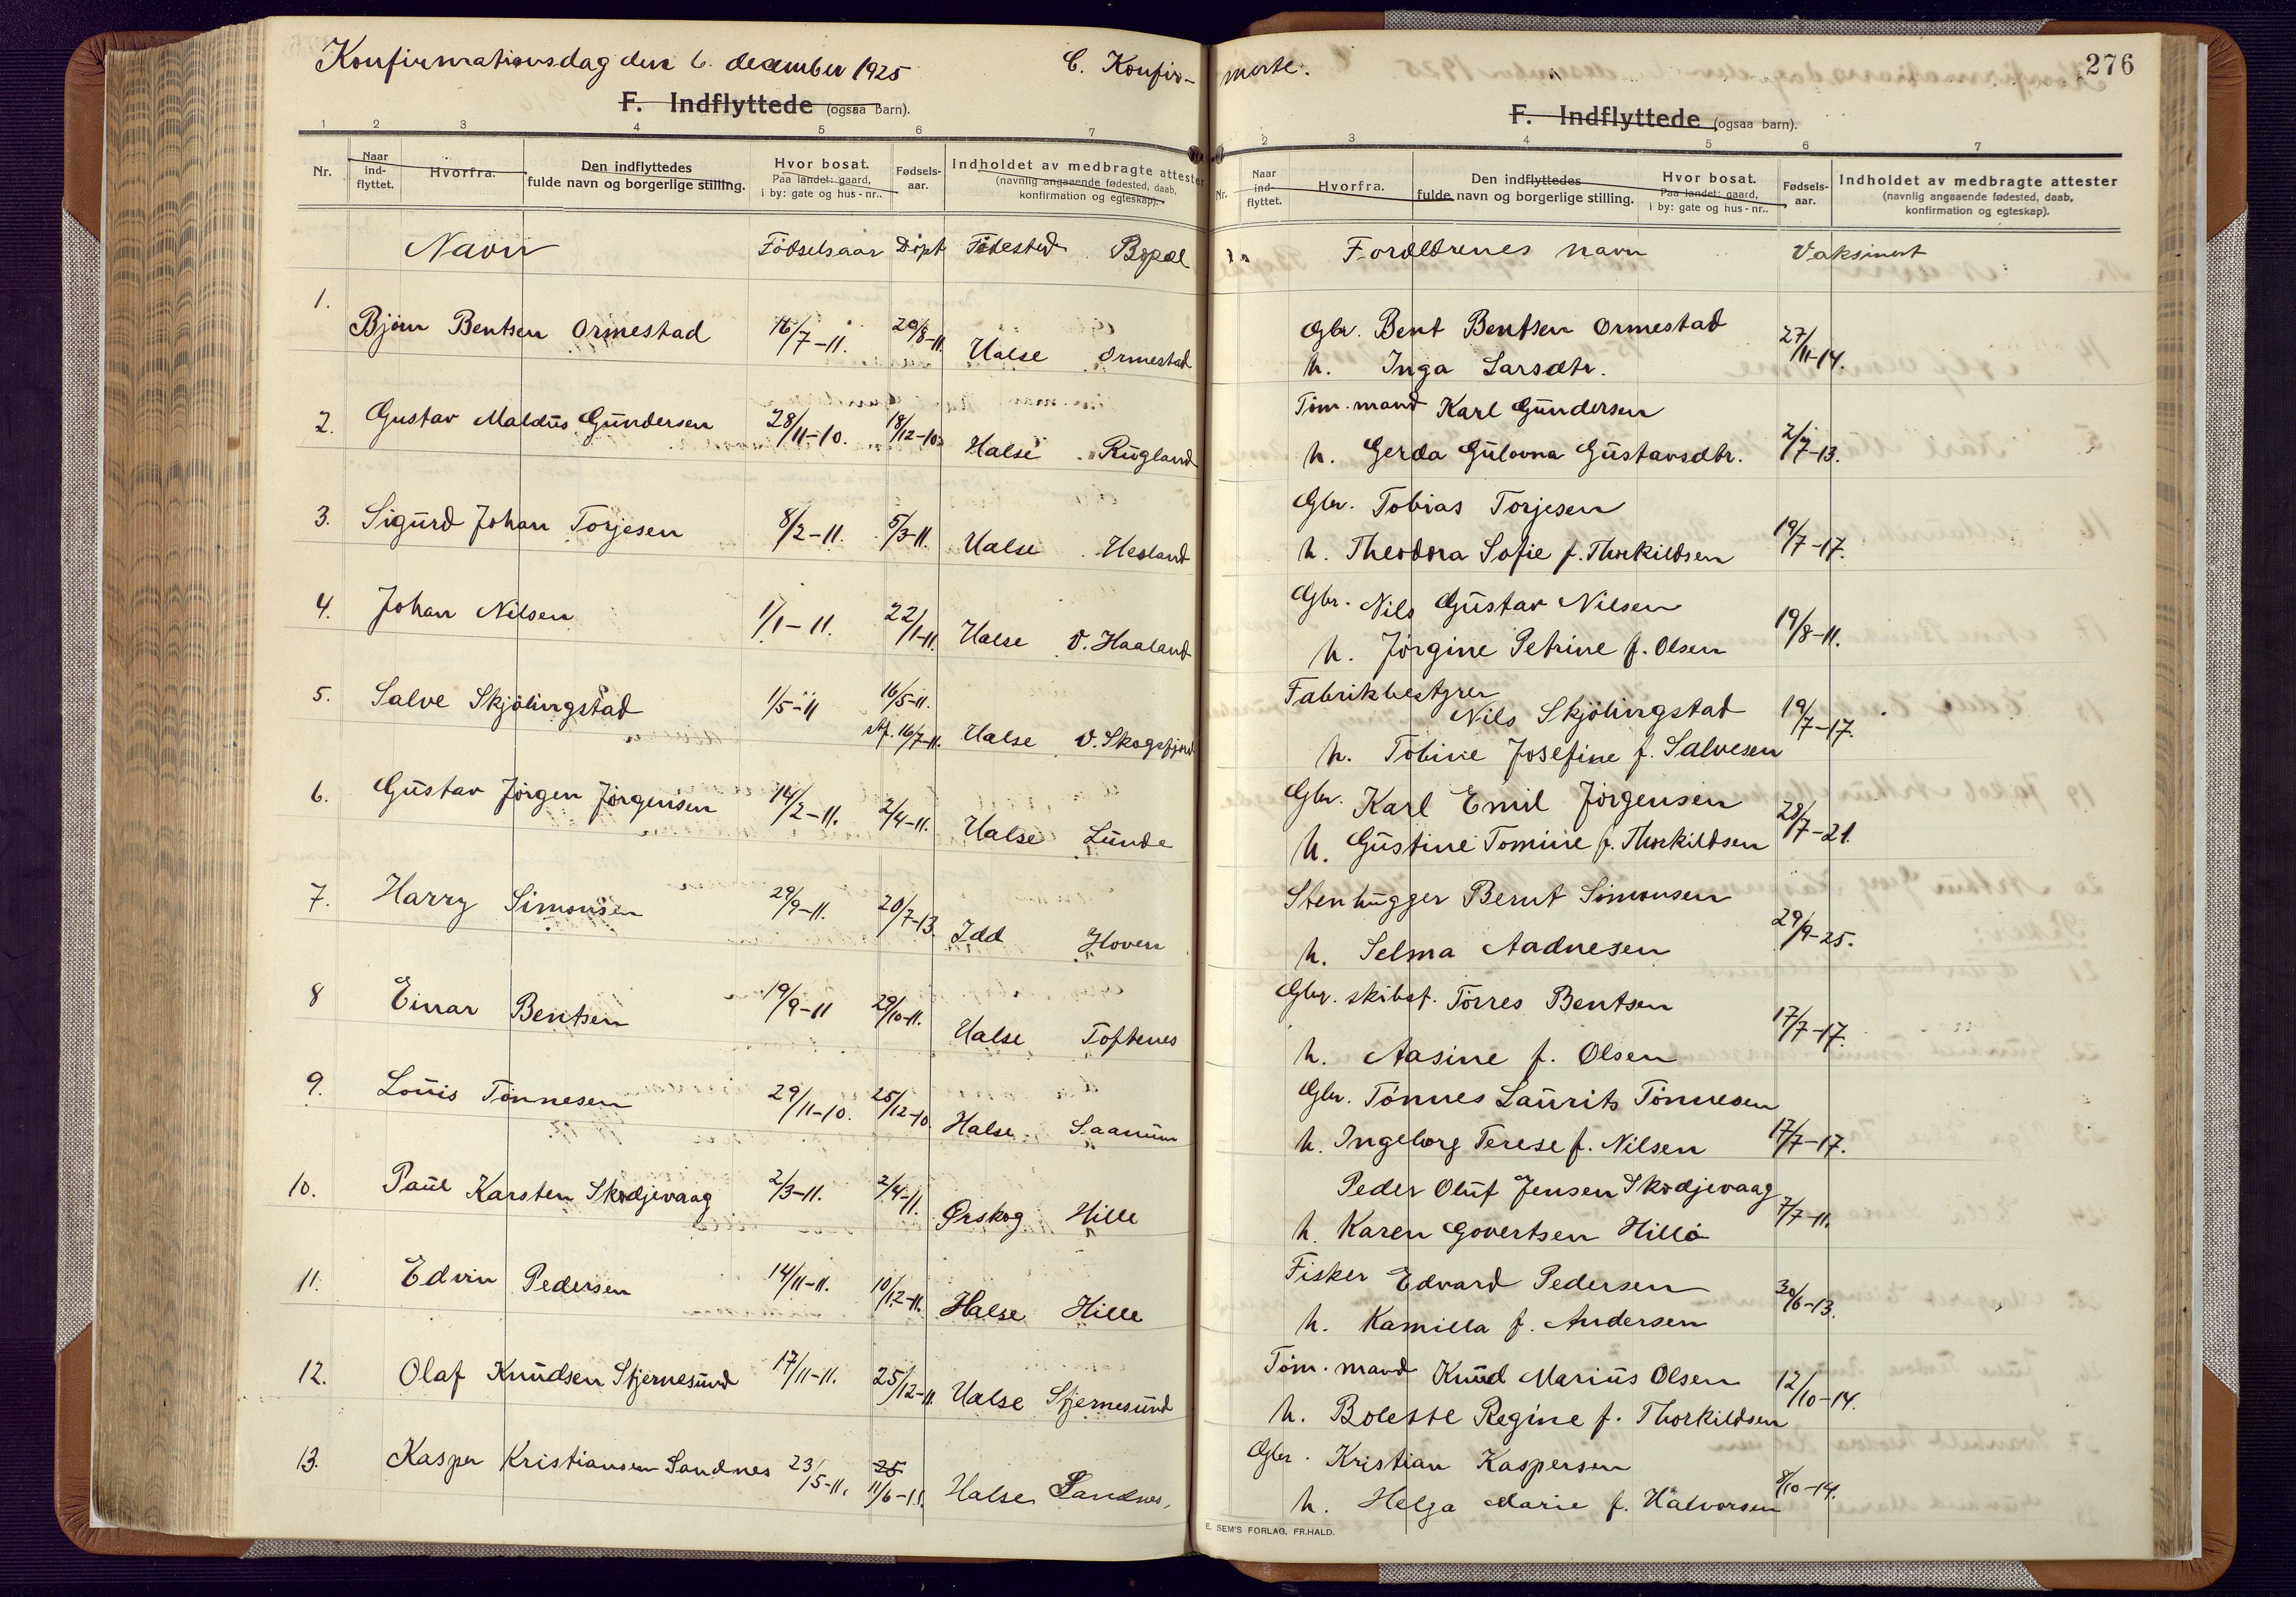 Konfirmationsdag den 6. december 1925
C. Konfir-
F. Indflyttede (ogsaa barn).
1 2 3 4 5 6 7
Nr. Naar ind-flyttet. Hvorfra. Den indflyttedes fulde navn og borgerlige stilling. Hvor bosat. Paa landet: gaard, i by: gate og hus-nr.. Fødsels-aar. Indholdet av medbragte attester (navnlig angaaende fødested, daab, konfirmation og egteskap).
Navn Födselsaar Döpt Födested Bopæl
1. Bjørn Bentsen Ormestad 16/7-11. 20/8-11. Halse Ormestad
2. Gustav Maldus Gundersen 28/11-10. 18/12-10. Halse Rugland
3. Sigurd Johan Torjesen 8/2-11. 5/3-11. Halse Hesland
4. Johan Nilsen 1/1-11. 22/1-11. Halse V. Haaland
5. Salve Skjölingstad 1/5-11 16/5-11.
stf. 16/7-11. Halse V. Skogsfjord
6. Gustav Jörgen Jörgensen 14/2-11. 2/4-11. Halse Lunde
7. Harry Simonsen 29/9-11. 20/7-13. Idd Hoven
8 Einar Bentsen 19/9-11 29/10-11. Halse Toftenes
9. Louis Tönnesen 29/11-10. 25/12-10. Halse Saanum
10. Paul Karsten Skodjevaag 2/3-11. 2/4-11. Ørskog Hille
11. Edvin Pedersen 14/11-11. 10/12-11. Halse Hille
12. Olaf Knudsen Stjernesund 17/11-11. 25/12-11. Halse Stjernesund
13. Kasper Kristiansen Sandnes 23/5-11. 25 11/6-11. Halse Sandnes.
merte.
276
F. Indflyttede (ogsaa barn).
2 3 4 5 6 7
Nr. Naar ind-flyttet. Hvorfra. Den indflyttedes fulde navn og borgerlige stilling. Hvor bosat. Paa landet: gaard, i by: gate og hus-nr.. Fødsels-aar. Indholdet av medbragte attester (navnlig angaaende fødested, daab, konfirmation og egteskap).
Forældrenes navn Vaksinert
Gbr. Bent Bentsen Ormestad 27/11-14.
h. Inga Larsdtr.
Töm. mand Karl Gundersen
h. Gerda Gulovna Gustavsdtr. 2/7-13.
Gbr. Tobias Torjesen
h. Theodora Sofie f. Thorkildsen 19/7-17.
Gbr. Nils Gustav Nilsen 19/8-11.
h. Jörgine Petrine f. Olsen
Fabrikbestyrer
Nils Skjölingstad 19/7-17.
h. Tobine Josefine f. Salvesen
Gbr. Karl Emil Jörgensen 28/7-21.
h. Gustine Tomine f. Thorkildsen
Stenhugger Bernt Simonsen
h. Selma Aadnesen 29/9-25.
Gbr. skibsf. Törres Bentsen 17/7-17.
h. Aasine f. Olsen
Gbr. Tönnes Laurits Tönnesen
h. Ingeborg Terese f. Nilsen 17/7-17.
Peder Oluf Jensen Skodjevaag
h. Karen Govertsen Hille 7/7-11.
Fisker Edvard Pedersen 30/6-13.
h. Kamilla f. Andersen
Töm. mand Knud Marius Olsen 12/10-14.
h. Bolette Regine f. Thorkildsen
Gbr. Kristian Kaspersen
h. Helga Marie f. Halvorsen 8/10-14.
E. SEM'S FORLAG, FR.HALD.